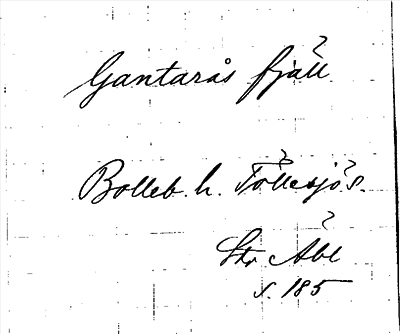 Gantarås fjäll
Bolleb. h. Töllesjö s.
Str Åbl
s. 185